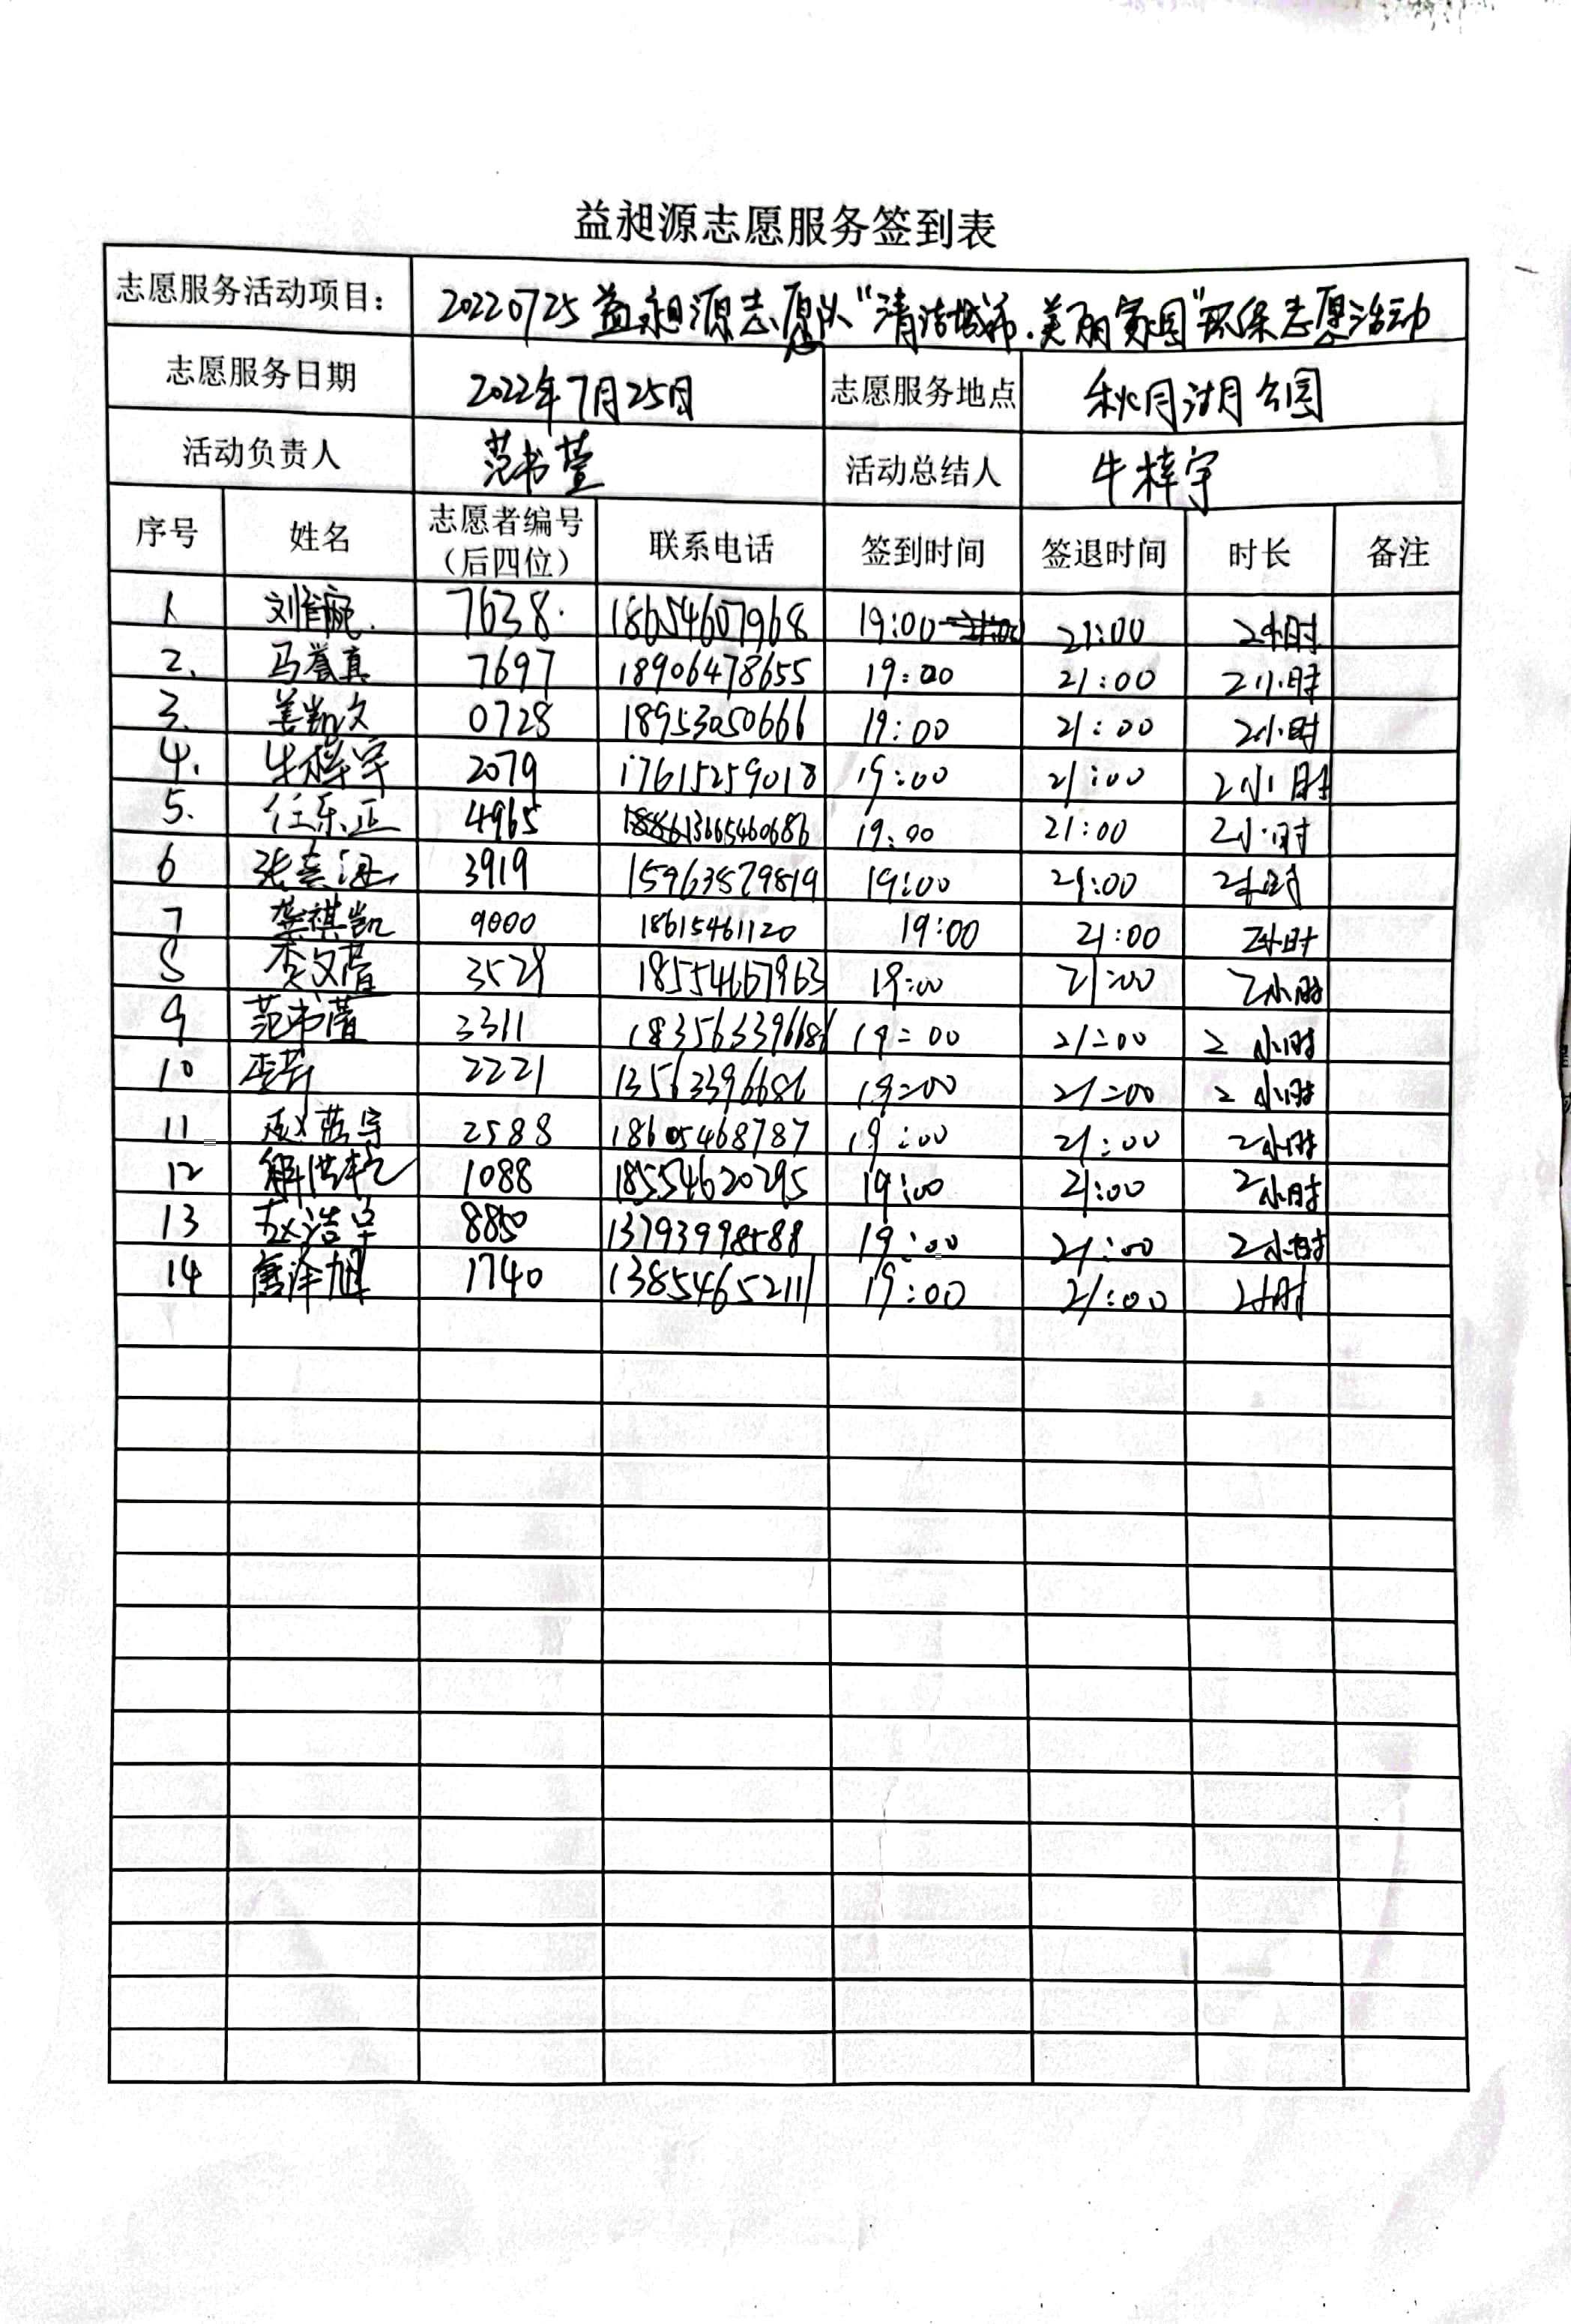 益昶源志愿服务签到表
志愿服务活动项目： 20220725益昶源志愿队“清洁城市.美丽家园”环保志愿活动
志愿服务日期 2022年7月25日 志愿服务地点 秋月湖公园
活动负责人 范书萱 活动总结人 牛梓宇
序号 姓名 志愿者编号（后四位） 联系电话 签到时间 签退时间 时长 备注
1. 刘 7638. 18654607968 19:00 21:00 2小时
2. 马誉真 7697 18906478655 19:00 21:00 2小时
3. 姜凯文 0728 18953050666 19:00 21:00 2小时
4. 牛梓宇 2079 17615259018 19:00 21:00 2小时
5. 任乐正 4965 13665460686 19:00 21:00 2小时
6 张 3919 15963879819 19:00 21:00 2小时
7 龚祺凯 9000 18615461120 19:00 21:00 2小时
8 李文萱 3528 18554667963 19:00 21:00 2小时
9 范书萱 3311 19:00 21:00 2小时
10 2221 13563396686 19:00 21:00 2小时
11 赵 宇 2588 18605468787 19:00 21:00 2小时
12 解 1088 18554620295 19:00 21:00 2小时
13 赵浩宇 8850 13793998588 19:00 21:00 2小时
14 唐泽旭 1740 13854652111 19:00 21:00 2小时